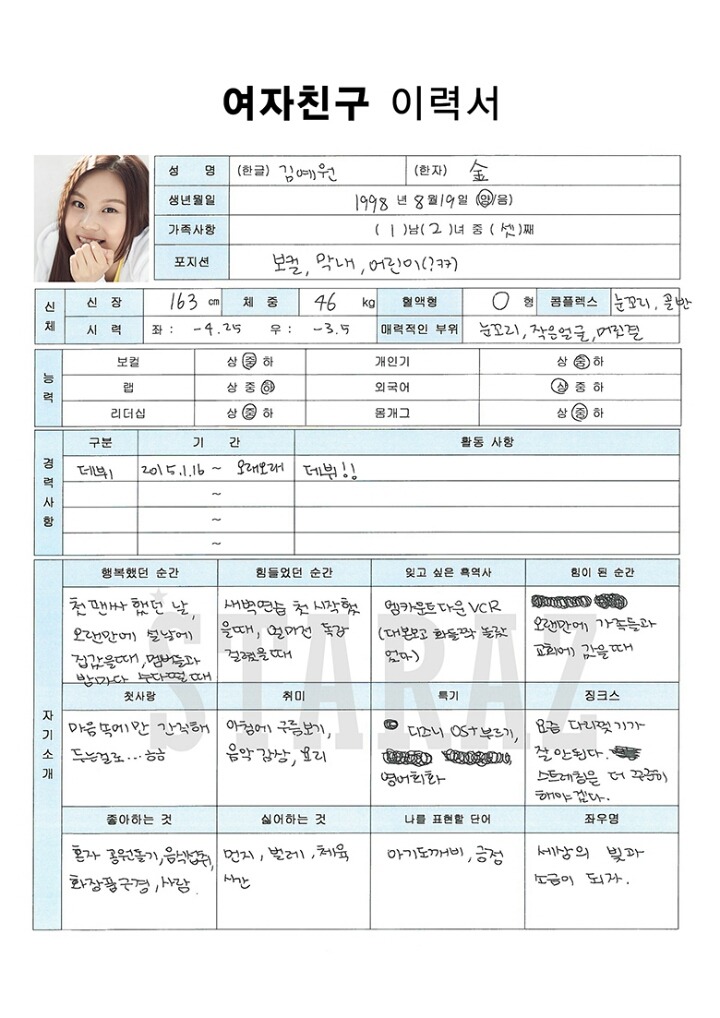 여자친구 이력서
성 명 (한글) 김예원 (한자) 金
생년월일 1998 년 8 월 19 일 (양/음)
가족사항 ( 1 )남( 2 )녀 중 ( 셋 )째
포지션 보컬, 막내, 어린이(?ㅋㅋ)
신체
신 장 163 cm 체 중 46 kg 혈액형 O 형 콤플렉스 눈꼬리, 골반
시 력 좌 : -4.25 우 : -3.5 매력적인 부위 눈꼬리, 작은얼굴, 머릿결
능력
보컬 상 중 하 개인기 상 중 하
랩 상 중 하 외국어 상 중 하
리더십 상 중 하 몸개그 상 중 하
경력사항
구분 기 간 활동 사항
데뷔 2015.1.16 ~ 오래오래 데뷔!!
~
~
~
자기소개
행복했던 순간 힘들었던 순간 잊고 싶은 흑역사 힘이 된 순간
첫 팬싸 했던 날,
오랜만에 설날에
집갔을때, 멤버들과
밤마다 수다떨때
새벽연습 첫 시작했
을때, 얼마전 독감
걸렸을때
엠카운트다운 VCR
(대본보고 화들짝 놀랐
었다)
오랜만에 가족들과
교회에 갔을때
첫사랑 취미 특기 징크스
마음속에만 간직해
두는걸로... ㅎㅎ
아침에 구름보기,
음악감상, 요리
디즈니 OST부르기,
영어회화
요즘 다리찢기가
잘 안된다.
스트레칭은 더 꾸준히
해야겠다.
좋아하는 것 싫어하는 것 나를 표현할 단어 좌우명
혼자 공원돌기, 음식섭취,
화장품구경, 사람
먼지, 벌레, 체육
시간
아기도깨비, 긍정
세상의 빛과
소금이 되자.
STARAZ